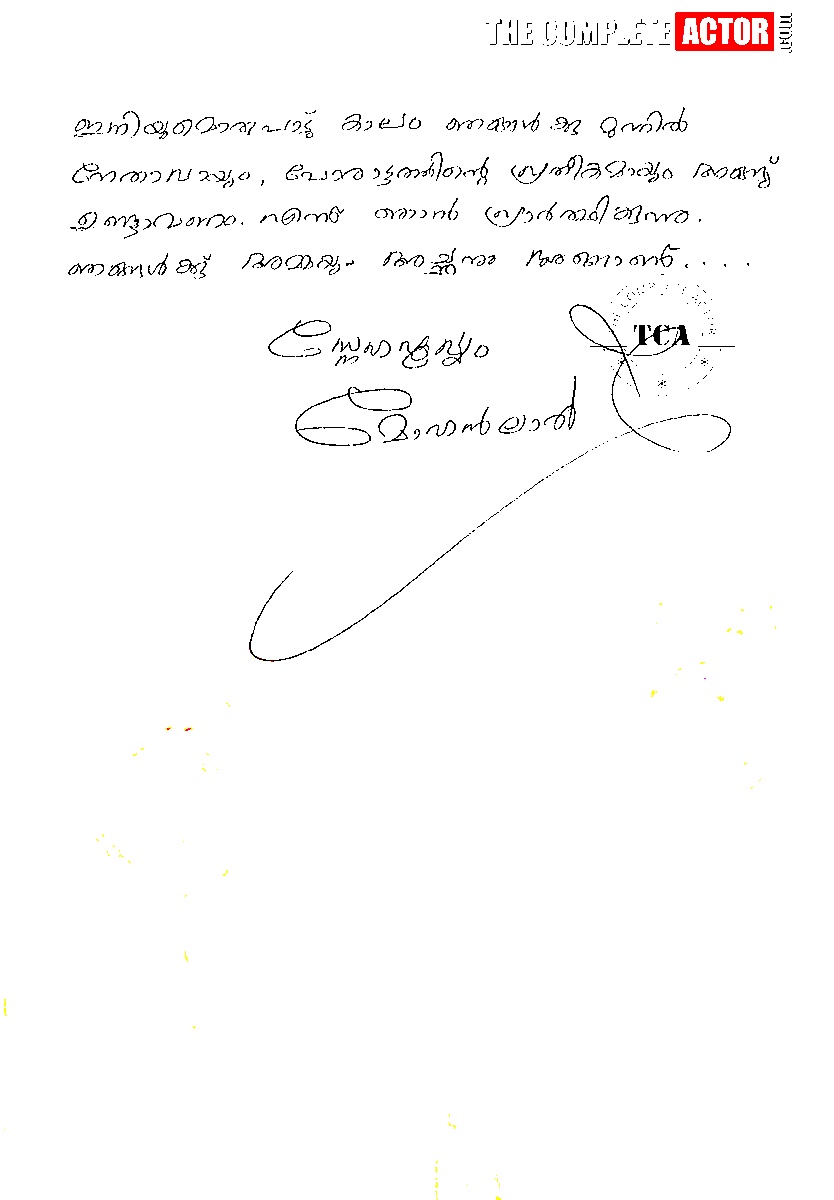 THE COMPLETE ACTOR
ഇനിയുമൊരുപാട് കാലം ഞങ്ങൾക്കു മുന്നിൽ
നേതാവായും, പോരാട്ടത്തിന്റെ പ്രതീകമായും അങ്ങ്
ഉണ്ടാവണം. എന്ന് ഞാൻ പ്രാർത്ഥിക്കുന്നു.
ഞങ്ങൾക്ക് അമ്മയും അച്ഛനും അങ്ങാണ്....
സ്നേഹപൂർവ്വം
TCA
മോഹൻലാൽ